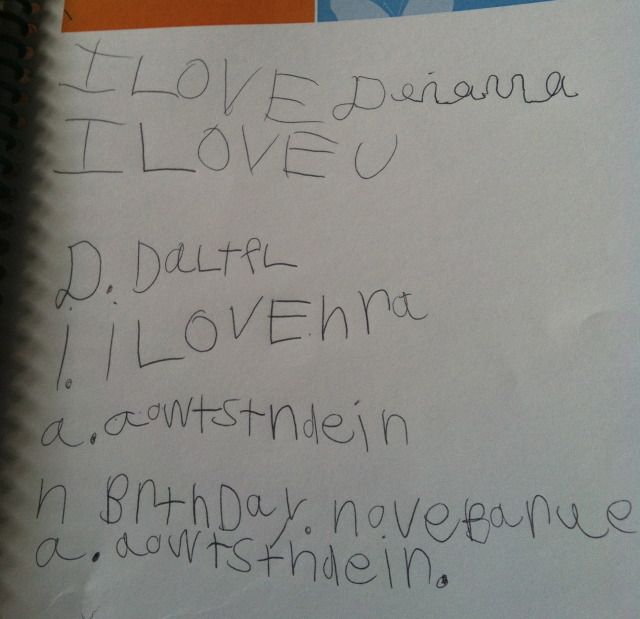 I LOVE Deianna
I LOVE U
D. DaLtfL
i. I LOVE hra
a. aowtstndein
n BrthDay. novebanue
a. aowtsthdein.